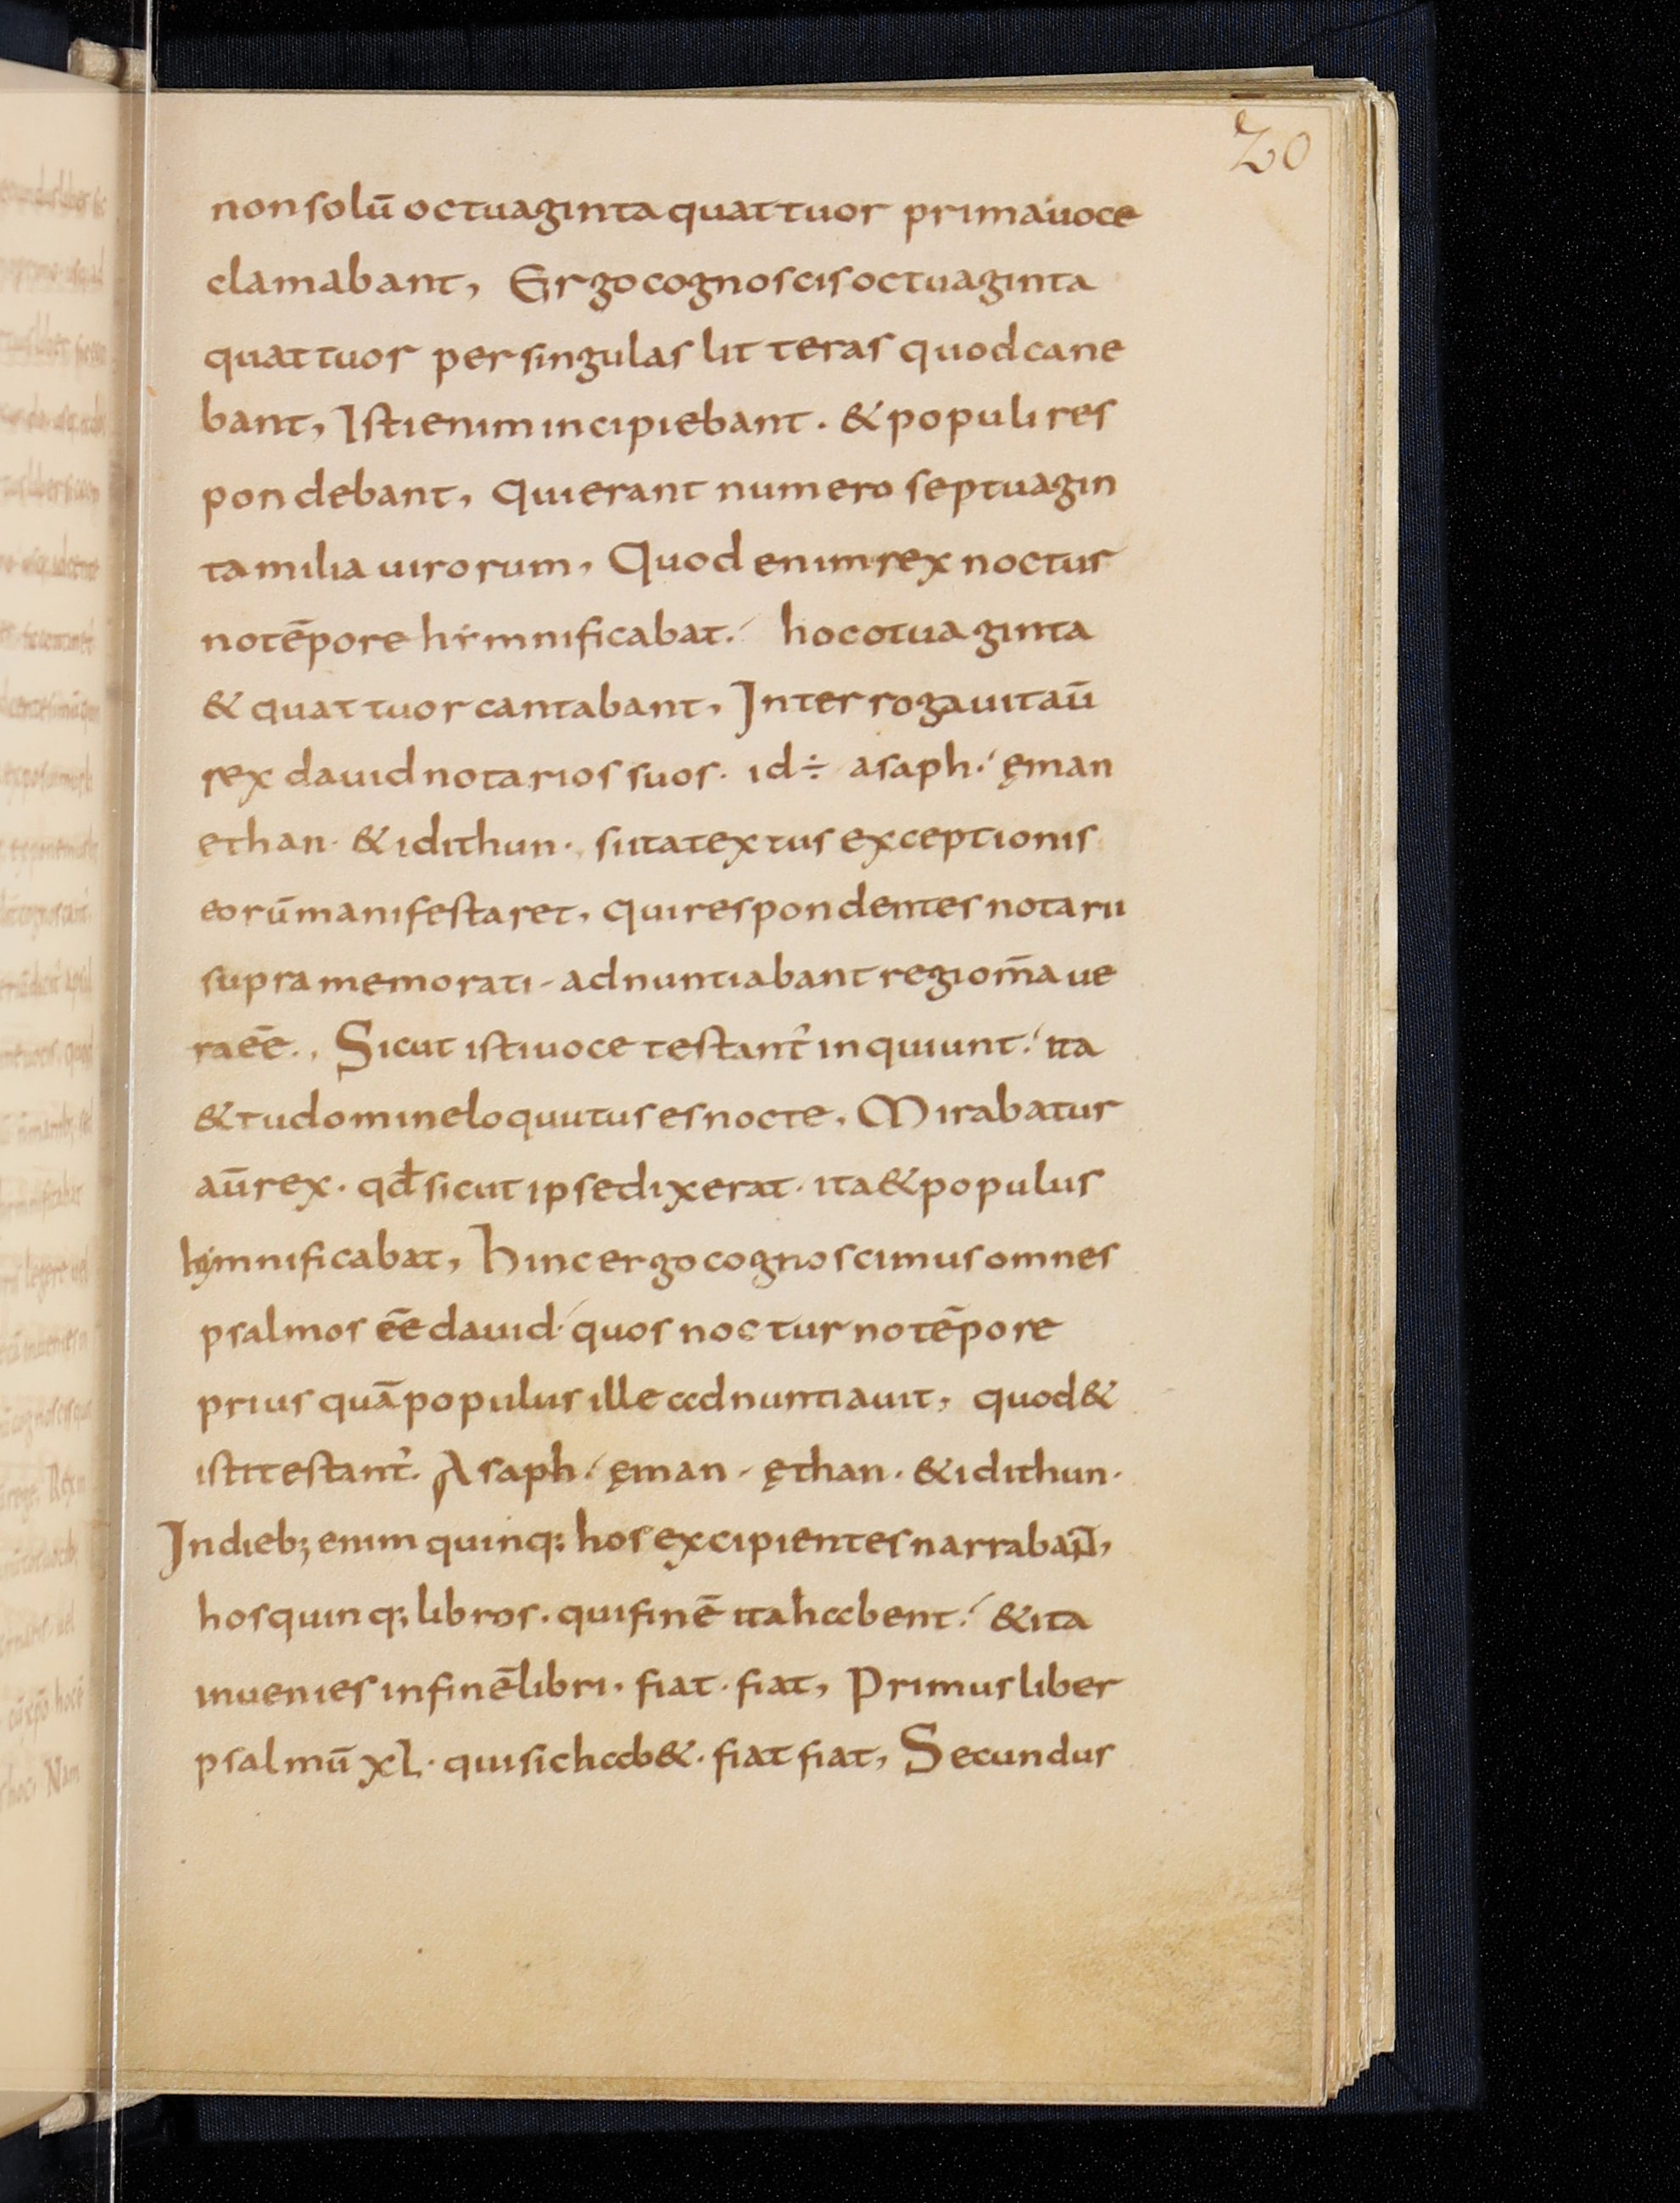 20
non solū octuaginta quattuor prima uoce
clamabant, Ergo cognoscis octuaginta
quattuor per singulas litteras quod cane
bant, Isti enim incipiebant. & populi res
pondebant, qui erant numero septuagin
ta milia uirorum, Quod enim rex noctur
no tēpore hẏmnificabat. hoc otuaginta
& quattuor cantabant, Interrogauit aū
rex dauid notarios suos. id ÷ asaph. ęman
ethan. & idithun. si ita textus exceptionis
eorū manifestaret, qui respondentes notarii
supra memorati - adnuntiabant regi om̄a ue
ra eē., Sicut isti uoce testant᷑ inquiunt. ita
& tu domine loquutus es nocte, Mirabatur
aū rex. qđ sicut ipse dixerat. ita & populus
hẏmnificabat, Hinc ergo cognoscimus omnes
psalmos eē dauid. quos nocturno tēpore
prius quā populus ille adnuntiauit, quod &
isti testant᷑. Asaph. ęman - ęthan. & idithun.
In dieb; enim quinq; hos excipientes narrabant,
hos quinq; libros. qui finē ita habent. & ita
inuenies in finē libri. fiat. fiat, Primus liber
psalmū XL. qui sic hab&. fiat fiat, Secundus